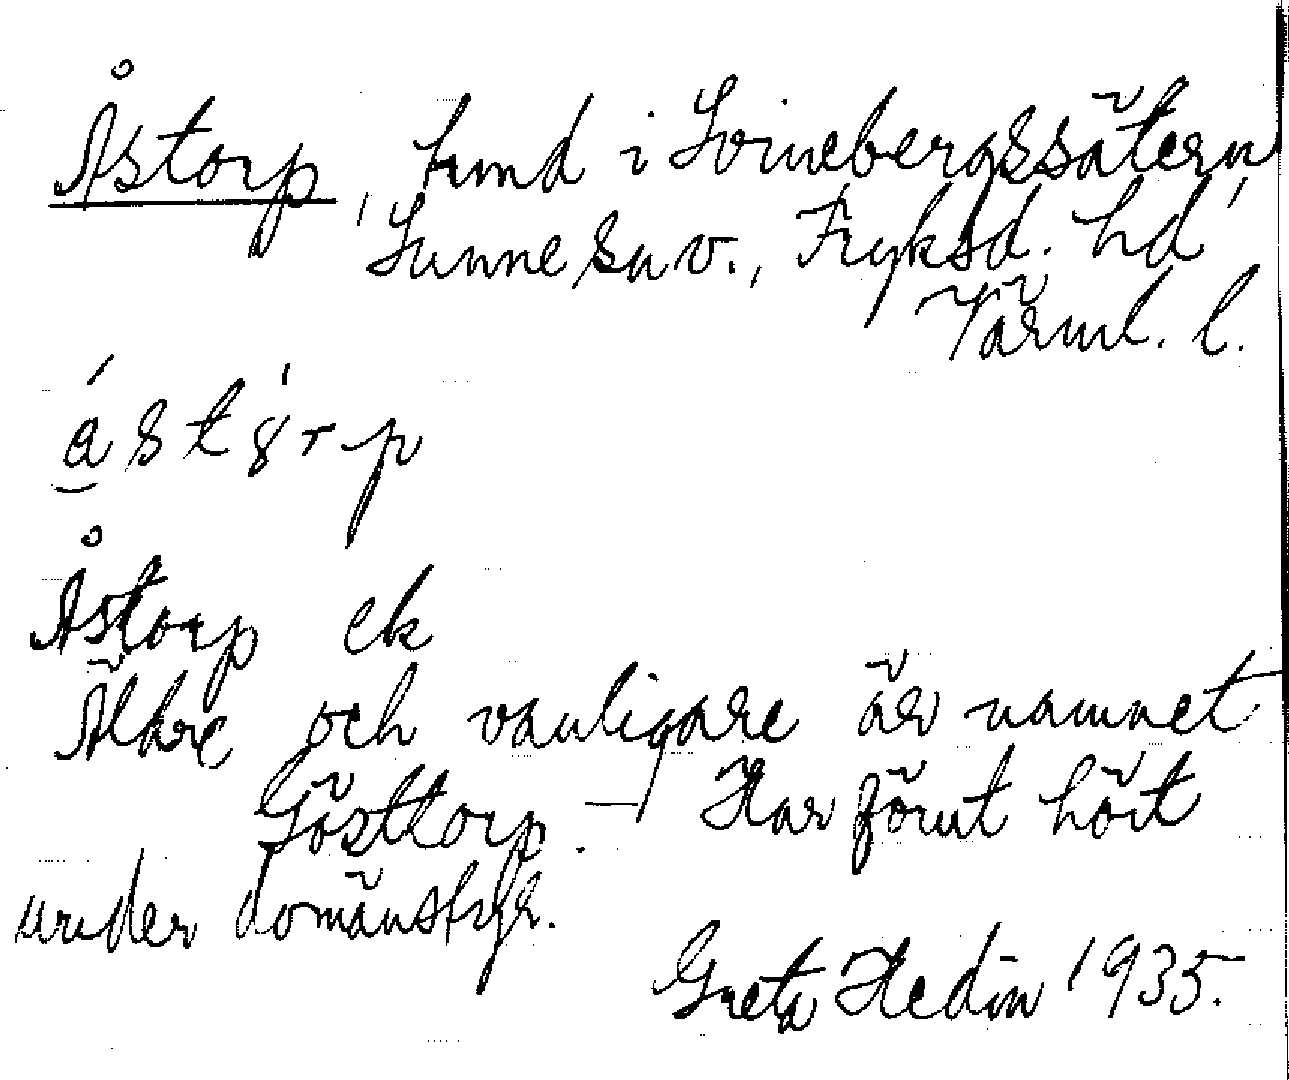 Åstorp, hmd i Svinebergssätern,
Sunne sn v., Fryksd. hd
Värml. l.
ástó̀rp
Åstorp ek
Äldre och vanligare är namnet
Gösttorp. — Har förut hört
under domänstyr.
Greta Hedin 1935.